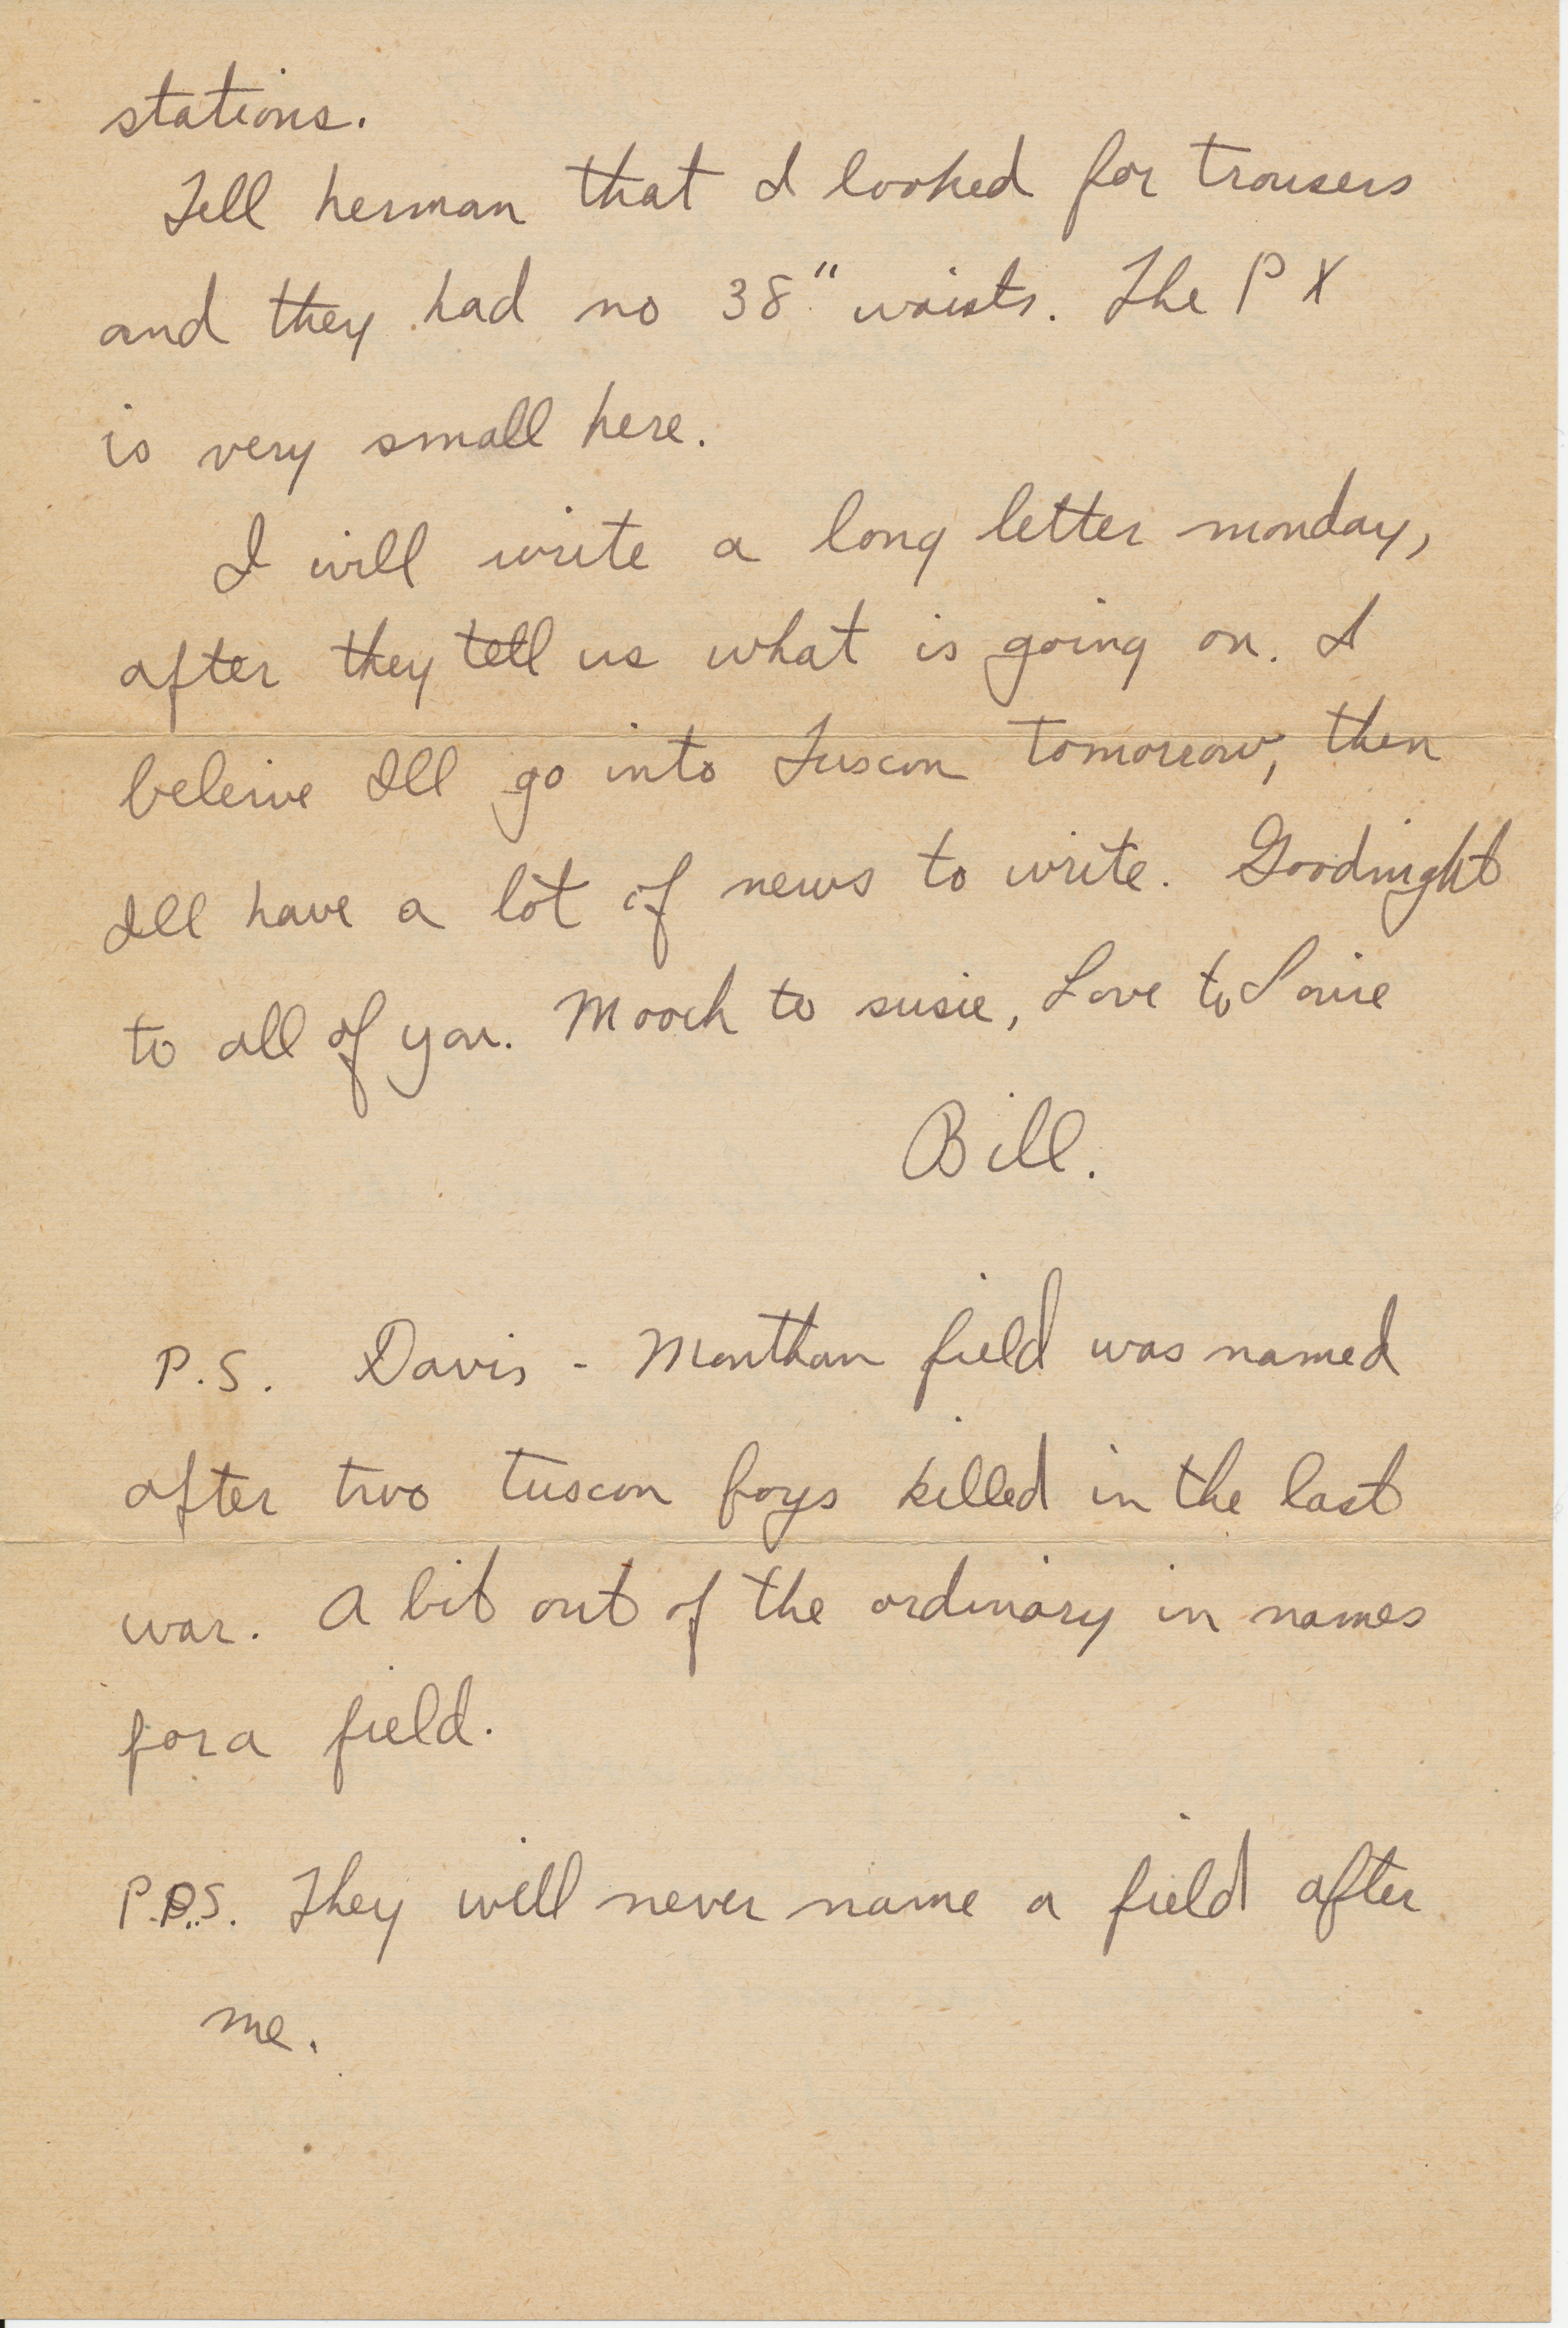 stations.
Tell herman that I looked for trousers
and they had no 38" waists. The PX
is very small here.
I will write a long letter monday,
after they tell us what is going on. I
beleive Ill go into Tuscon tomorrow, then
Ill have a lot of news to write. Goodnight
to all of you. Mooch to susie, Love to Louie
Bill.
P.S. Davis - Monthan field was named
after two tuscon boys killed in the last
war. A bit out of the ordinary in names
for a field.
P.P.S. They will never name a field after
me.